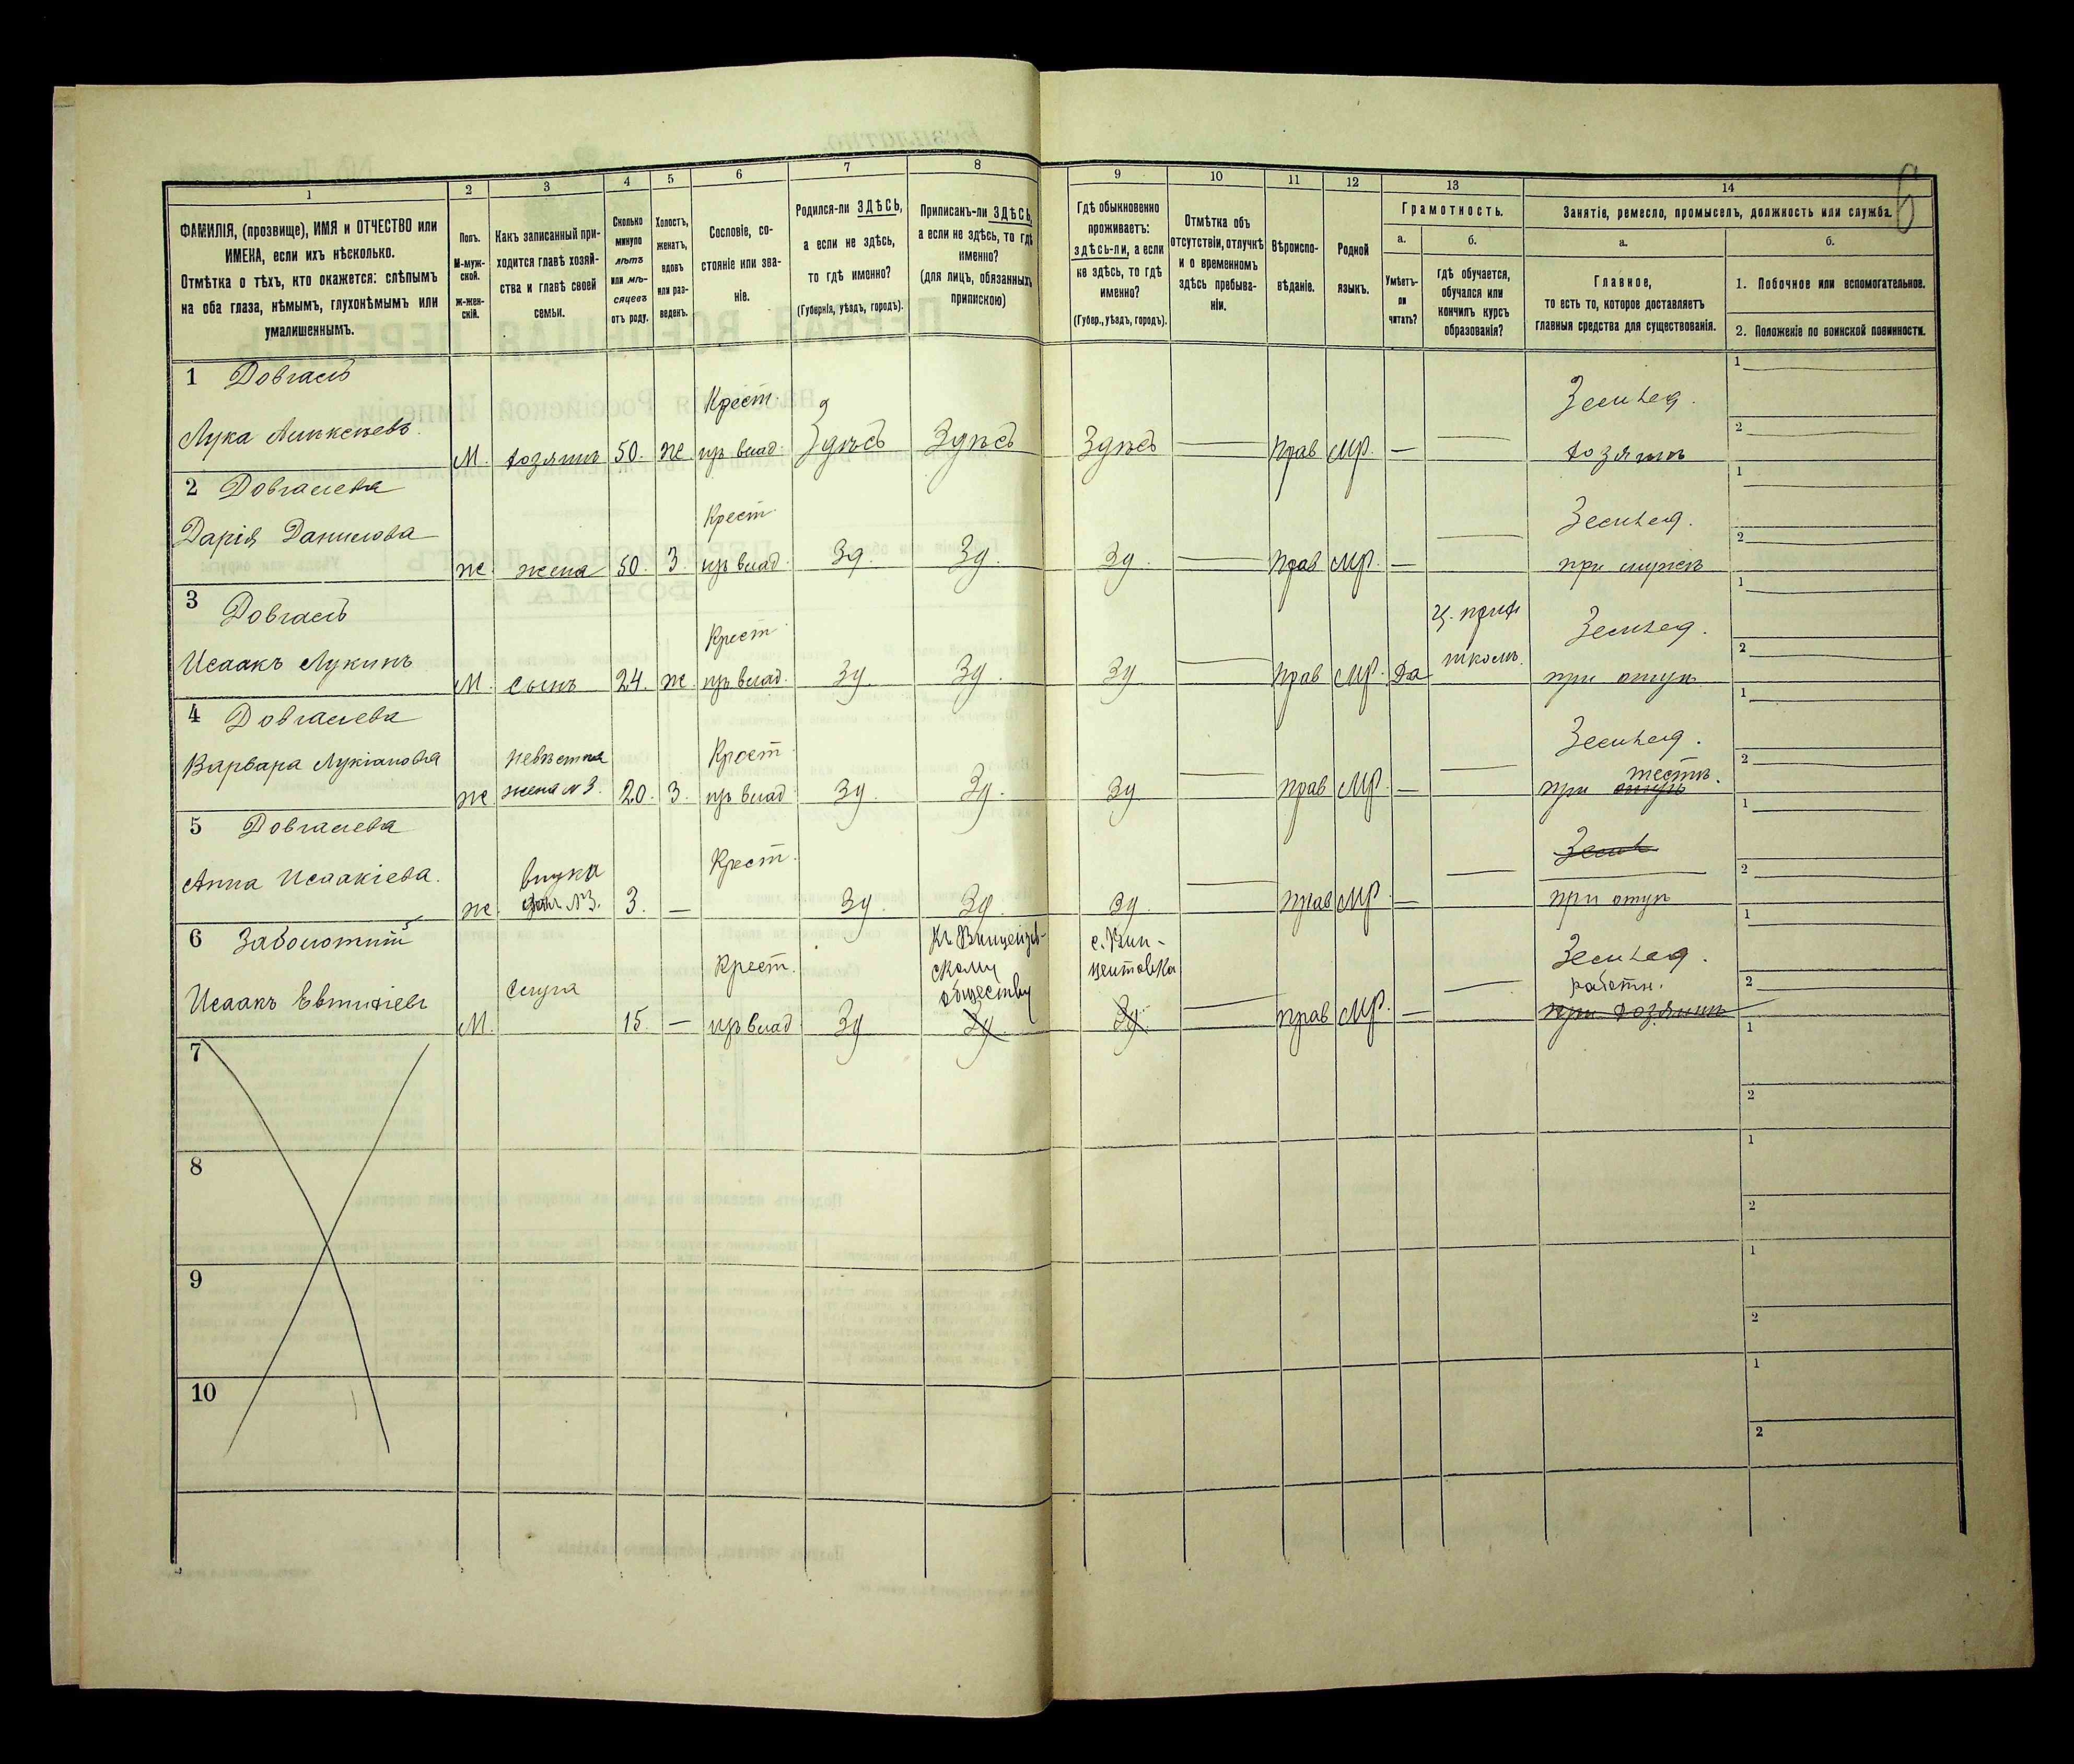 6
1 2 3 4 5 6 7 8 9 10 11 12 13 14
ФАМИЛІЯ, (прозвище), ИМЯ и ОТЧЕСТВО или
ИМЕНА, если ихъ нѣсколько.
Отмѣтка о тѣхъ, кто окажется: слѣпымъ
на оба глаза, нѣмымъ, глухонѣмымъ или
умалишеннымъ.
Полъ.
М-муж-
ской.
Ж-жен-
скій.
Какъ записанный при-
ходится главѣ хозяй-
ства и главѣ своей
семьи.
Сколько
минуло
лѣтъ
или мѣ-
сяцевъ
отъ роду.
Холостъ,
женатъ,
вдовъ
или раз-
веденъ.
Сословіе, со-
стояніе или зва-
ніе.
Родился-ли ЗДѢСЬ,
а если не здѣсь,
то гдѣ именно?
(Губернія, уѣздъ, городъ).
Приписанъ-ли ЗДѢСЬ,
а если не здѣсь, то гдѣ
именно?
(для лицъ, обязанныхъ
припискою)
Гдѣ обыкновенно
проживаетъ:
здѣсь-ли, а если
не здѣсь, то гдѣ
именно?
(Губер., уѣздъ, городъ).
Отмѣтка объ
отсутствіи, отлучкѣ
и о временномъ
здѣсь пребыва-
ніи.
Вѣроиспо-
вѣданіе.
Родной
языкъ.
Грамотность.
а.
Умѣетъ-
ли
читать?
б.
Гдѣ обучается,
обучался или
кончилъ курсъ
образованія?
Занятіе, ремесло, промыселъ, должность или служба.
а.
Главное,
то есть то, которое доставляетъ
главныя средства для существованія.
б.
1. Побочное или вспомогательное.
2. Положеніе по воинской повинности.
1 Довгаль Крест. Землед. 1
Лука Алексѣевъ М. хозяинъ 50. ж из влад. Здѣсь Здѣсь Здѣсь — Прав Мр. — — хозяинъ 2
2 Довгалева Крест. Землед. 1
Дарія Данилова ж. жена 50. З из влад. Зд. Зд. Зд. — Прав Мр. — — при мужѣ 2
3 Довгаль Крест Землед. 1
Исаакъ Лукинъ М. сынъ 24. ж. из влад. Зд. Зд. Зд — Прав Мр. Да школѣ. при отцѣ 2
4 Довгалева Крест Землед. 1
Варвара Лукіановна невѣстка тестѣ.
ж жена № 3. 20. З. из влад Зд Зд. Зд — Прав Мр. — — при отцѣ 2
5 Довгалева Крест. Земл 1
Анна Исаакіева. внука
ж. № 3. 3. — Зд. Зд. Зд — Прав Мр — — при отцѣ 2
6 Заболотній скому обществу с. Вин-
центовка Землед. 1
Исаакъ Евтихіевъ Слуга Крест. работн. 2
М. 15. — из влад Зд Зд Зд — Прав Мр. — — при хозяинѣ
7 1
2
8 1
2
9 1
2
10 1
2